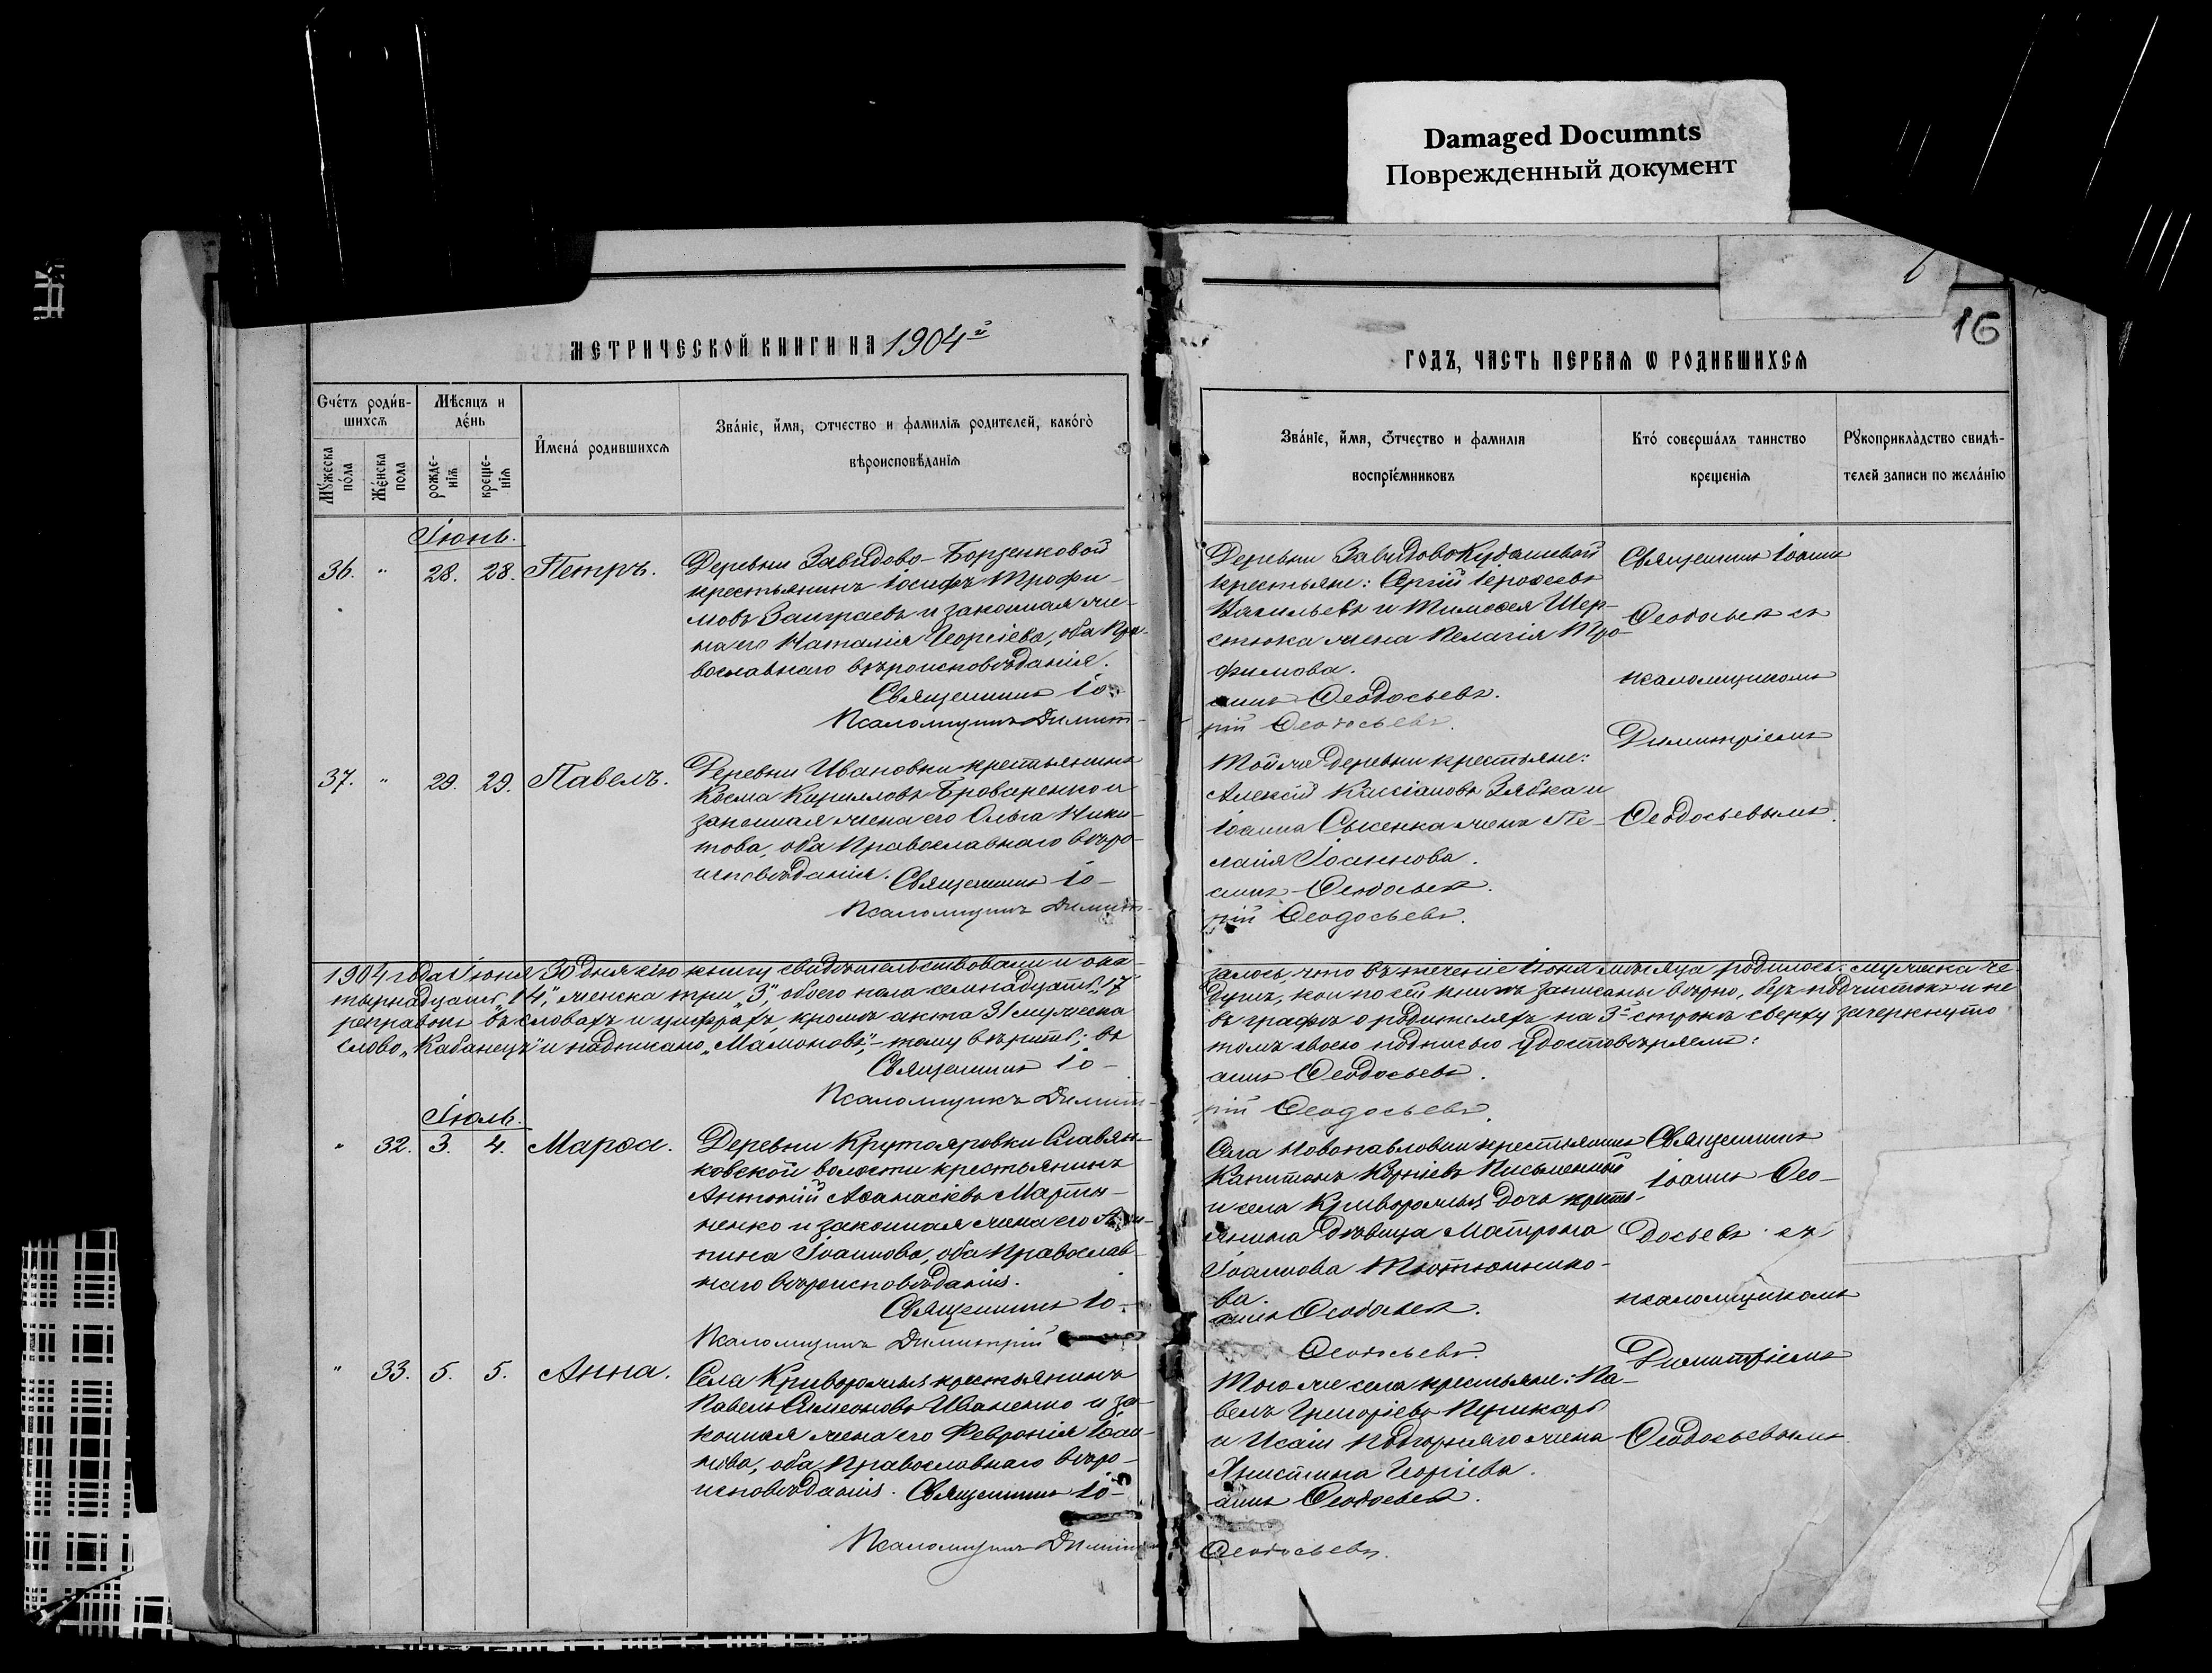 Damaged Documnts
Поврежденный документ
16
МЕТРИЧЕСКОЙ КНИГИ НА 1904й
ГОДЪ, ЧАСТЬ ПЕРВАЯ Ѡ РОДИВШИХСЯ
Счетъ родив-
шихся
Мѣсяцъ и
день
Мужеска
пола
Женска
пола
рожде-
нія
креще-
нія
Имена родившихся
Званіе, имя, отчество и фамилія родителей, какого
вѣроисповѣданія
Званіе, имя, отчество и фамилія
воспріемниковъ
Кто совершалъ таинство
крещенія
Рукоприкладство свидѣ-
телей записи по желанію
Іюнь.
36. " 28. 28. Петръ.
Деревни Завидово-Борзенковой
крестьянинъ Іосифъ Трофи-
мовъ Заиграевъ и законная же-
на его Наталія Георгіева, оба Пра-
вославнаго вѣроисповѣданія.
Священникъ Іо-
Псаломщикъ Димит-
Деревни Завидово Кудашевой
крестьяне: Сергій Іероѳеевъ
Васильевъ и Тимоѳея Шер-
стюка жена Пелагія Тро-
фимова.
аннъ Ѳеодосьевъ.
рій Ѳеодосьевъ.
Священникъ Іоаннъ
Ѳеодосьевъ съ
псаломщикомъ
Димитріемъ
Ѳеодосьевымъ.
37. " 29. 29. Павелъ.
Деревни Ивановки крестьянинъ
Косма Кирилловъ Броваренко и
законная жена его Ольга Ники-
това, оба Православнаго вѣро-
исповѣданія. Священникъ Іо-
Псаломщикъ Димит-
Той же деревни крестьяне:
Алексій Кассіановъ Зябка и
Іоанна Сысенка жена Пе-
лагія Іоаннова.
аннъ Ѳеодосьевъ.
рій Ѳеодосьевъ.
1904 года Іюня 30 дня сію книгу свидѣтельствовали и ока-
залось, что въ теченіе Іюня мѣсяца родилось: мужеска че-
тырнадцать „14", женска три „3", обоего пола семнадцать „17"
душъ, кои по сей книгѣ записаны вѣрно, безъ подчистокъ и не
реправокъ въ словахъ и цифрахъ, кромѣ акта 31 мужеска
въ графѣ о родителяхъ на 3й строкѣ сверху зачеркнуто
слово „Кабанецъ" и надписано „Мамоновъ", - тому вѣрить; въ
томъ своею подписью удостовѣряемъ:
Священникъ Іо-
аннъ Ѳеодосьевъ.
Псаломщикъ Димит-
рій Ѳеодосьевъ.
Іюль.
" 32. 3. 4. Марѳа.
Деревни Крутояровки Славян-
ковской волости крестьянинъ
Антоній Аѳанасіевъ Марты-
ненко и законная жена его
пина Іоаннова, оба Православ-
наго вѣроисповѣданія.
Священникъ Іо-
Псаломщикъ Димитрій
Села Новопавловки крестьянинъ
Капитонъ Корніевъ Письменный
и села Криворожья дочь кресть-
янина дѣвица Матрона
Іоаннова Тютюннико-
ва.
аннъ Ѳеодосьевъ.
Ѳеодосьевъ.
Священникъ
Іоаннъ Ѳео-
досьевъ съ
псаломщикомъ
Димитріемъ
Ѳеодосьевымъ
" 33. 5. 5. Анна.
Села Криворожья крестьянинъ
Павелъ Симеоновъ Иваненко и за-
конная жена его Февронія Іоан-
нова, оба Православнаго вѣро-
исповѣданія. Священникъ Іо-
Псаломщикъ Димитрій
Того же села крестьяне: Па-
велъ Григоріевъ Пушкарь
и Исаіи Подгорняго жена
Христина Георгіева.
аннъ Ѳеодосьевъ.
Ѳеодосьевъ.